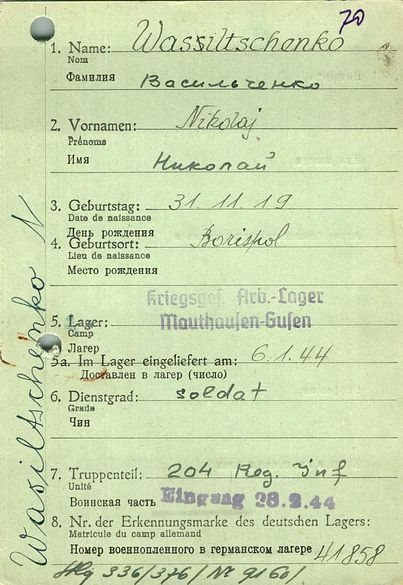 70
1. Name: Wassiltschenko
Nom
Фамилия Васильченко
2. Vornamen: Nikolaj
Prénoms
Имя Николай
3. Geburtstag: 31.11.19
Date de naissance
День рождения
4. Geburtsort: Borispol
Lieu de naissance
Место рождения
Kriegsgef. Arb.-Lager
5. Lager: Mauthausen-Gusen
Camp
Лагерь
5a. Im Lager eingeliefert am: 6.1.44
Доставлен в лагерь (число)
6. Dienstgrad: soldat
Grade
Чин
7. Truppenteil: 204 Reg. Inf
Unité
Воинская часть Eingang 28.2.44
8. Nr. der Erkennungsmarke des deutschen Lagers:
Matricule du camp allemand
Номер военнопленного в германском лагере 41858
336/376/Nr 9160/
Wasiltschenko N